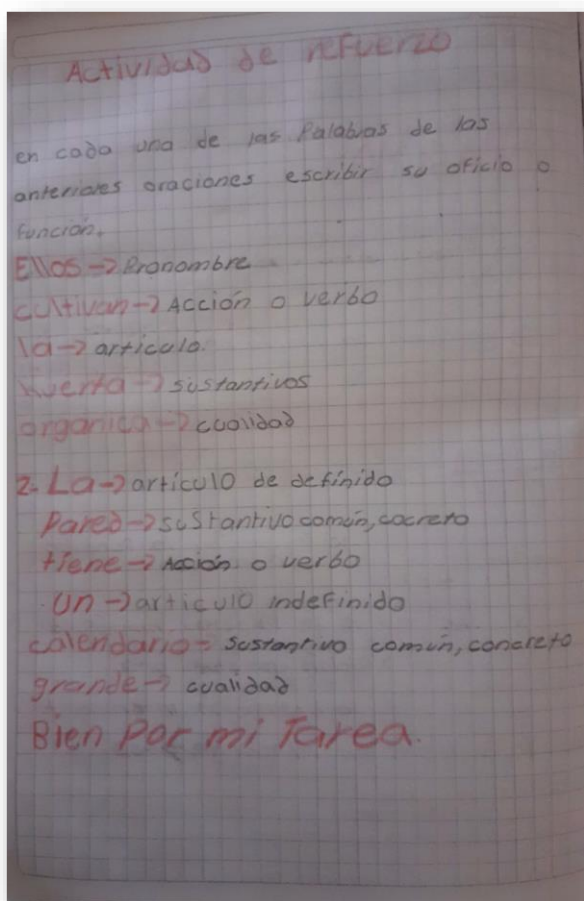 Actividad de refuerzo
en cada una de las Palabras de las
anteriores oraciones escribir su oficio o
función.
Ellos → Pronombre
cultivan → Acción o verbo
la → articulo.
huerta → sustantivos
organica → cualidad
2. La → articulo de definido
Pared → sustantivo común, cocreto
tiene → Acción o verbo
Un → articulo indefinido
calendario - sustantivo común, concreto
grande → cualidad
Bien Por mi Tarea.